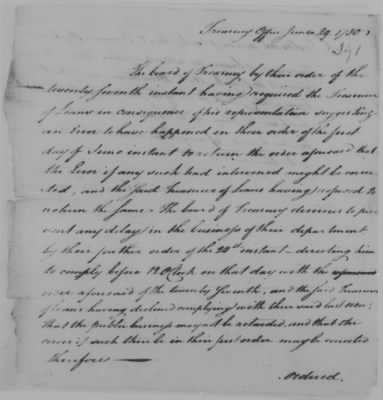 Treasury Office June 29. 1780
391
The board of Treasury by their order of the
twenty seventh instant having required the Treasurer
of Loans in consequence of his representation suggesting
an Error to have happened in their order of the first
day of June instant to return the order aforesaid that
the Error if any such had intervened might be correc
ted, and the said Treasurer of Loans having refused to
return the same - The board of Treasury desirous to pre
vent any delay in the business of their department
by their further order of the 28th instant - directing him
to comply before 12 OClock on that day with the aforesaid
order aforesaid of the twenty seventh, and the said Treasurer
of Loans having declined complying with their said last order;
that the public business may not be retarded, and that the
error if such there be in their first order may be corrected
therefore
Ordered.